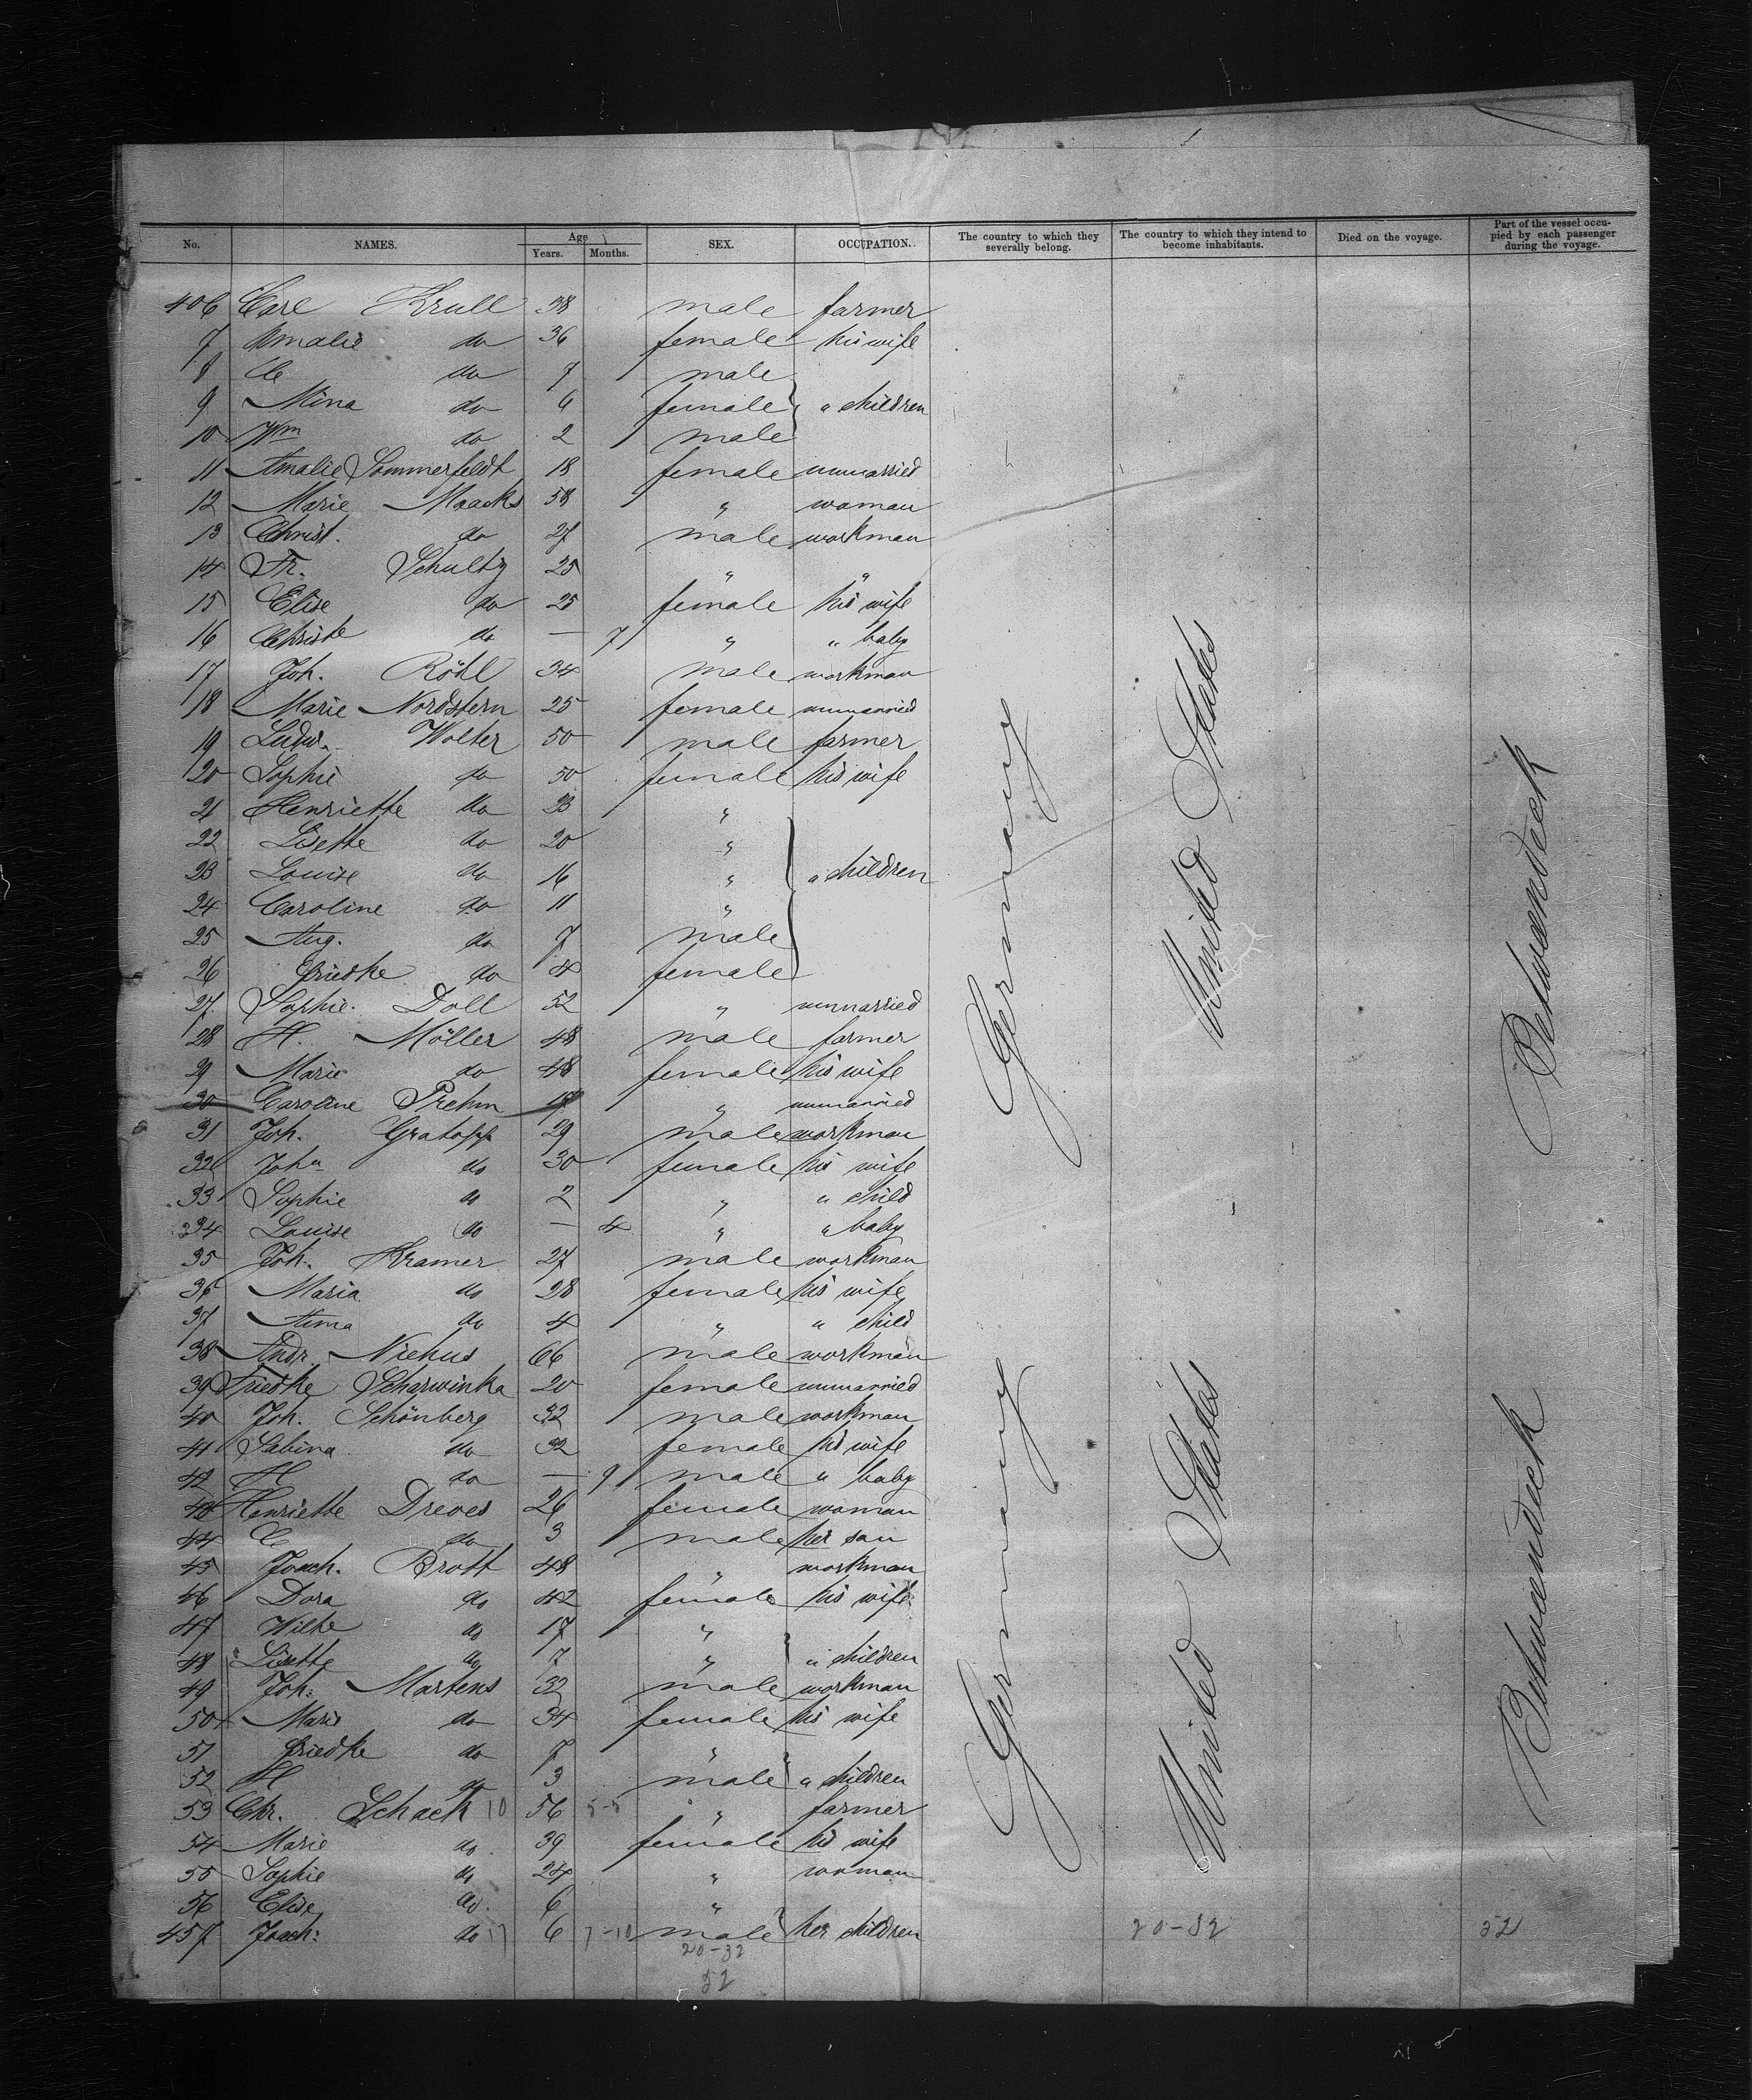 No. NAMES. Age Years. Months. SEX. OCCUPATION. The country to which they severally belong. The country to which they intend to become inhabitants. Died on the voyage. Part of the vessel occupied by each passenger during the voyage.
406 Carl Krull 38 male farmer
7 Amalie do 36 female his wife
8 C do 7 male
9 Mina do 6 female " children
10 Wm do 2 male
11 Amalie Sommerfeldt 18 female unmarried
12 Marie Maacks 58 " woman
13 Christ. do 27 male workman
14 Fr. Schultz 25 " "
15 Elise do 25 female his wife
16 Christe do — 7 " " baby
17 Joh. Röhl 34 male workman
18 Marie Nordstern 25 female unmarried
19 Ludw. Wolter 50 male farmer
20 Sophie do 50 female his wife
21 Henriette do 23 "
22 Lisette do 20 "
23 Louise do 16 " " children
24 Caroline do 11 "
25 Aug. do 7 male
26 Friedke do 4 female
27 Sophie Doll 52 " unmarried
28 H. Möller 48 male farmer
29 Marie do 48 female his wife
30 Caroline Prehm 19 " unmarried
31 Joh. Gratopp 29 male workman
32 Joha do 30 female his wife
33 Sophie do 2 " " child
34 Louise do — 4 " " baby
35 Joh. Kramer 27 male workman
36 Maria do 28 female his wife
37 Anna do 4 " " child
38 Andr. Niehus 66 male workman
39 Friedke Scharwinka 20 female unmarried
40 Joh. Schönberg 32 male workman
41 Sabina do 32 female his wife
42 H do — 9 male " baby
43 Henriette Dreves 26 female woman
44 C do 3 male her son
45 Joach. Brott 48 " workman
46 Dora do 42 female his wife
47 Wilhe do 17 "
48 Lisette do 7 " " children
49 Joh: Martens 32 male workman
50 Marie do 34 female his wife
51 Friedke do 7 "
52 H do 3 male " children
53 Chr. Schack 10 56 5-5 " farmer
54 Marie do 39 female his wife
55 Sophie do 24 " woman
56 Elise do 6 "
457 Joach: do 17 6 7-10 male her children
20-32
52
Germany
United States
Betweendeck
Germany
United States
Betweendeck
20-32
52